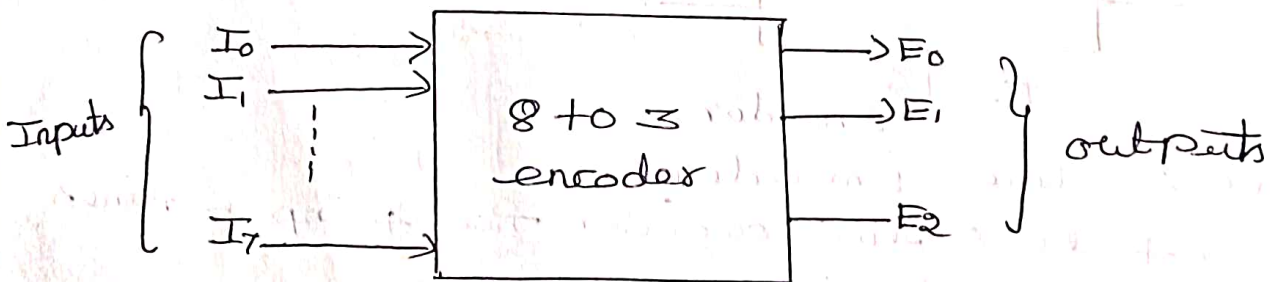 Inputs
I₀
I₁
I₇
8 to 3
encoder
E₀
E₁
E₂
outputs